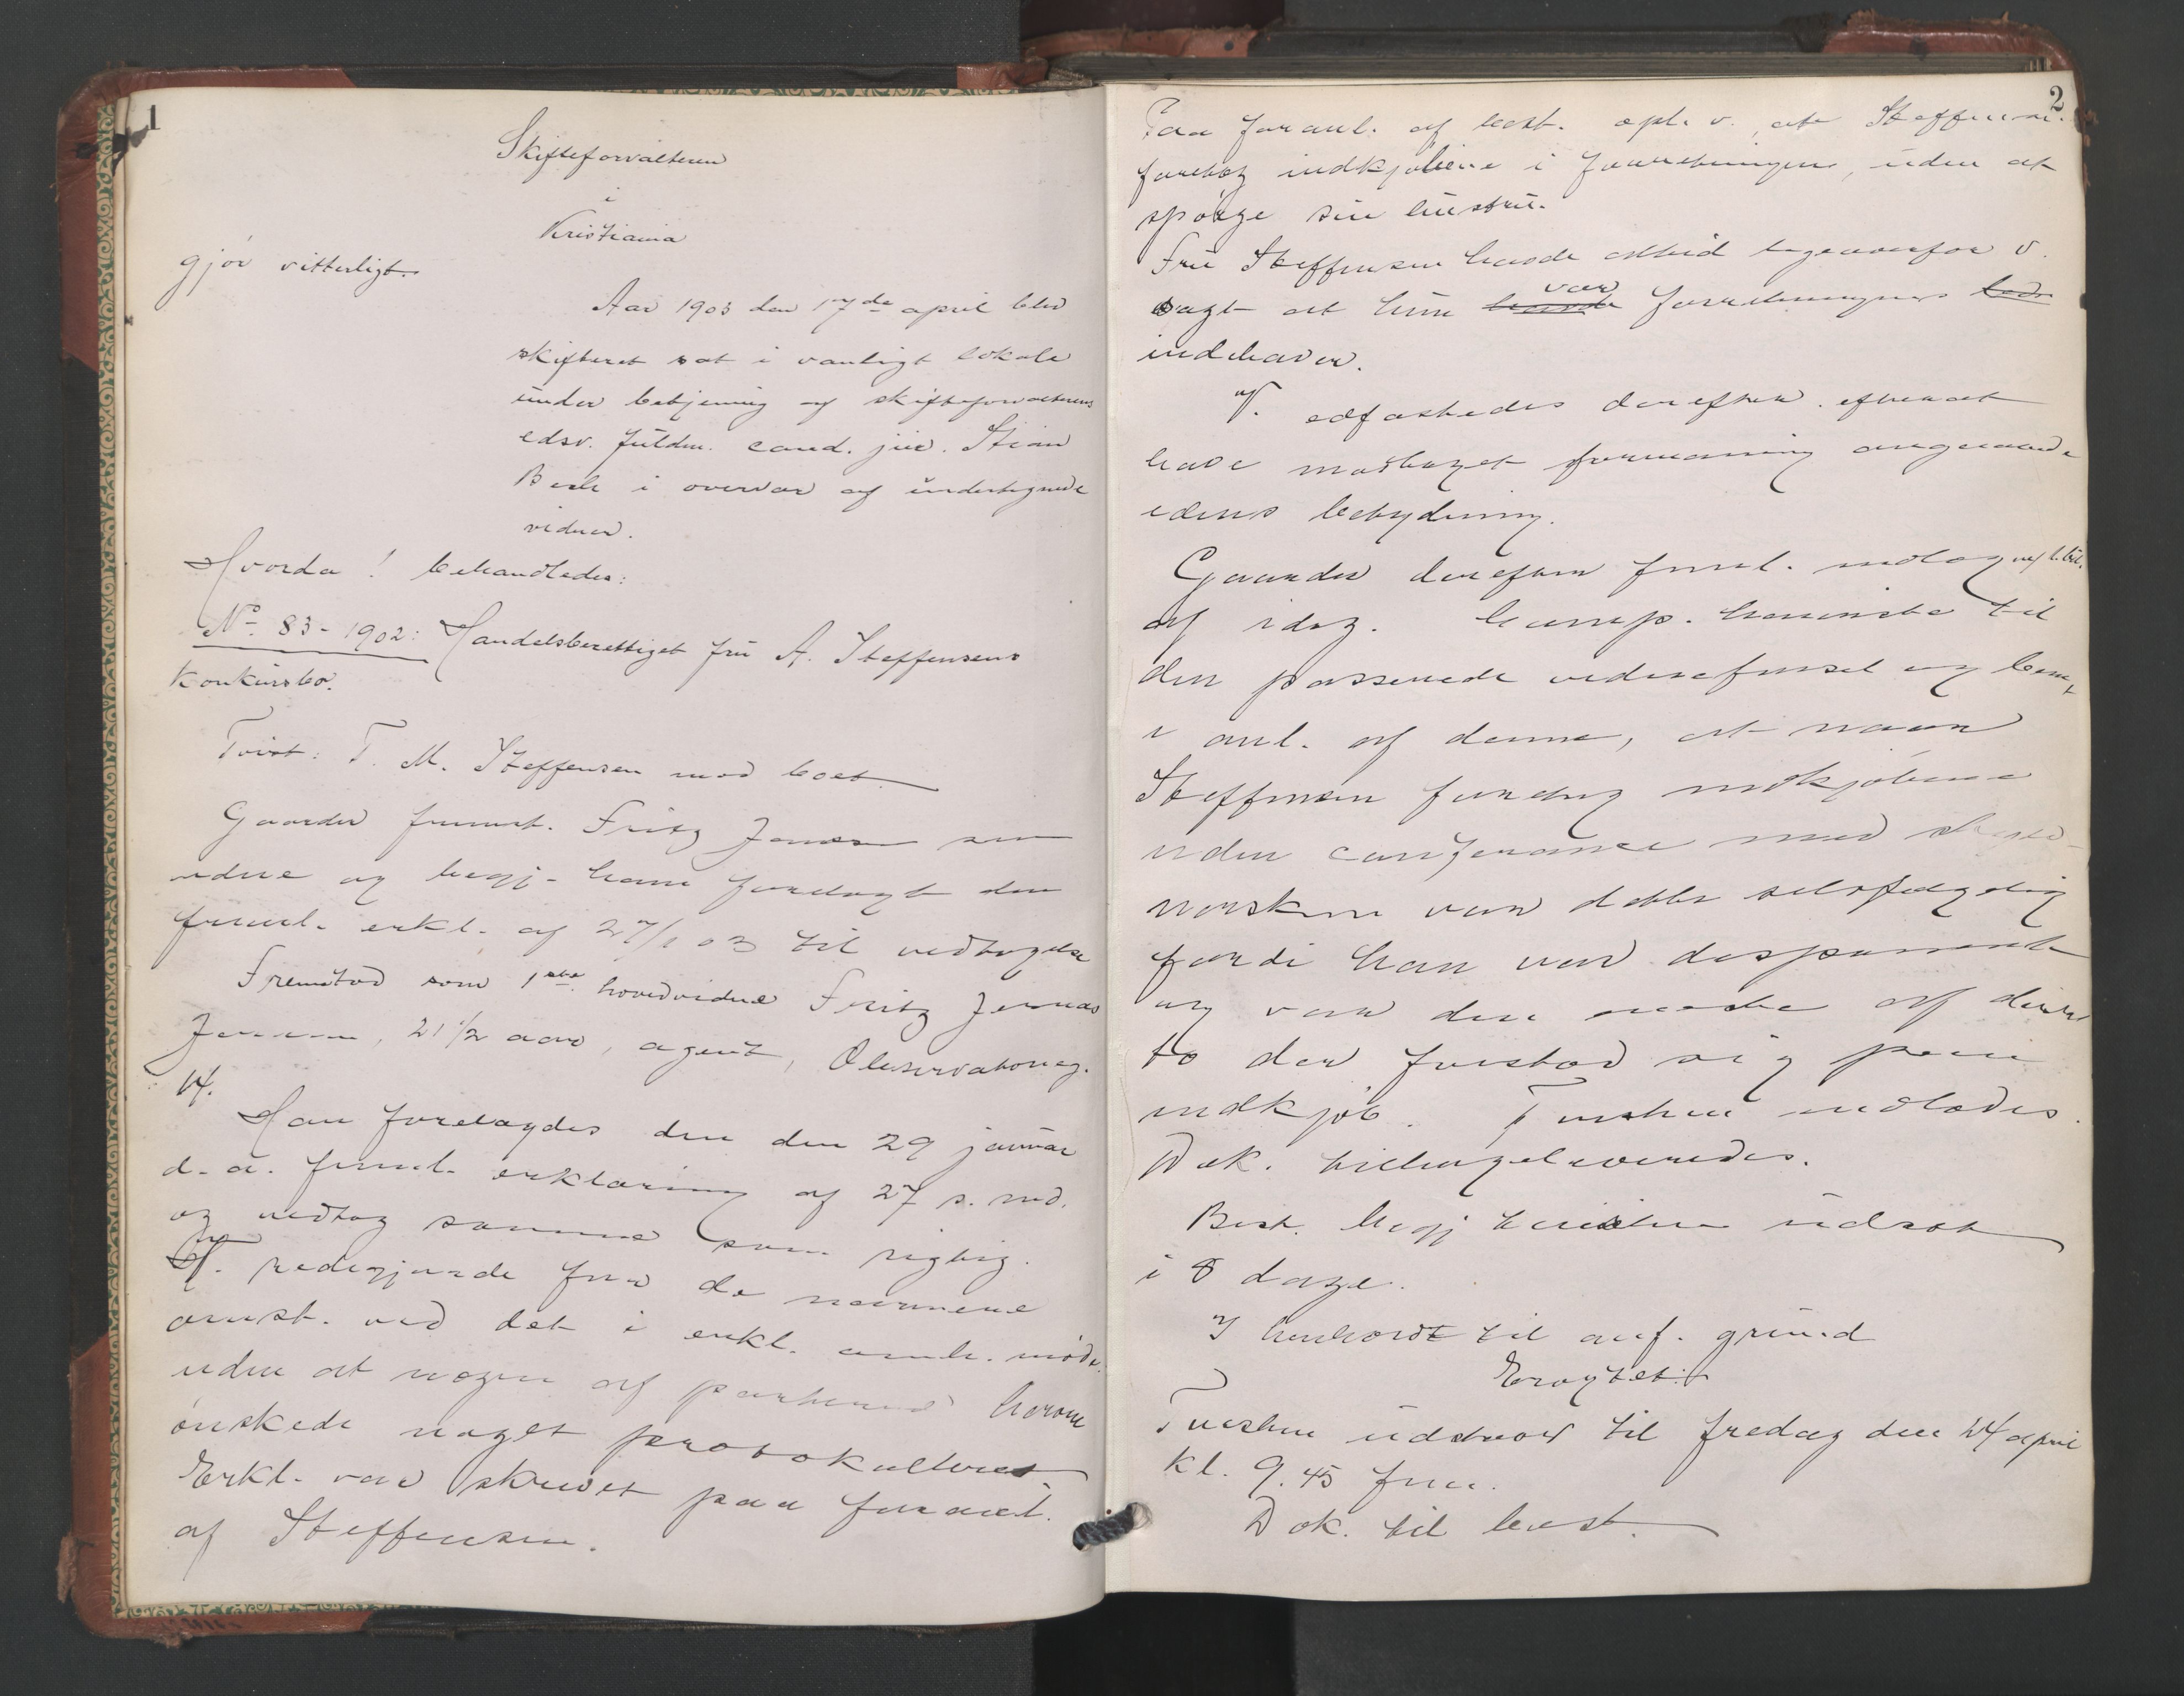 1
Skifteforvalteren
i
Kristiania
gjør vitterligt.
Aar 1903 den 17de april blev
skifteret sat i vanligt lokale
under betjening af skifteforvalterens
edsv. fuldm. cand. jur. Stian
Bech i overvær af undertegnede
vidner.
Hvorda! behandledes:
No. 83 - 1902: Handelsberettiget fru A. Steffensens
konkursbo.
Tvist: T. M. Steffensen mod boet.
Gaarder fremst. Fritz Jensen som
vidne og begj. ham forelagt den
freml. erkl. af 27/1 03 til vedtagelse
Fremstod som 1ste hovedvidne Fritz Jonas
Jensen, 21 1/2 aar, agent, Observatorieg.
14.
Han forelagdes den den 29 januar
d. a. freml. erklæring af 27 s. md.
og vedtog samme som rigtig.
V. redegjorde for de nærmere
omst. ved det i erkl. omh. møde
uden at nogen af parterne herom
ønskede noget protokolleret.
Erkl. var skrevet paa foranl.
af Steffensen.
2
Paa foranl. af best. opl. v., at Steffensen
foretog indkjøbene i forretningen, uden at
spørge sin hustru.
Fru Steffensen havde altid ligeoverfor v.
sagt at hun havde var forretningens
indehaver.
V. edfæstedes derefter efterat
have modtaget formaning angaaende
edens betydning.
Gaarder derefter freml. indlæg
af idag. Komp. henviste til
den passerede vidneførsel og bem.
i anl. af denne, at naar
Steffensen foretog indkjøbene
uden conferance med
var dette selvfølgelig
fordi han var disponent
og var den eneste af disse
to der forstod sig paa
indkjøb. Tvisten indlodes.
Dok. tilbageleveredes.
Best. begj tvisten udsat
i 8 dage.
I henhold til anf. grund
Eragtet:
Tvisten udstaar til fredag den 24 april
kl. 9.45 fm.
Dok. til best.